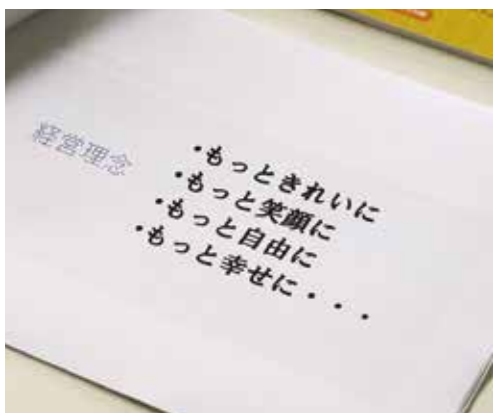 経営理念
・もっときれいに
・もっと笑顔に
・もっと自由に
・もっと幸せに・・・